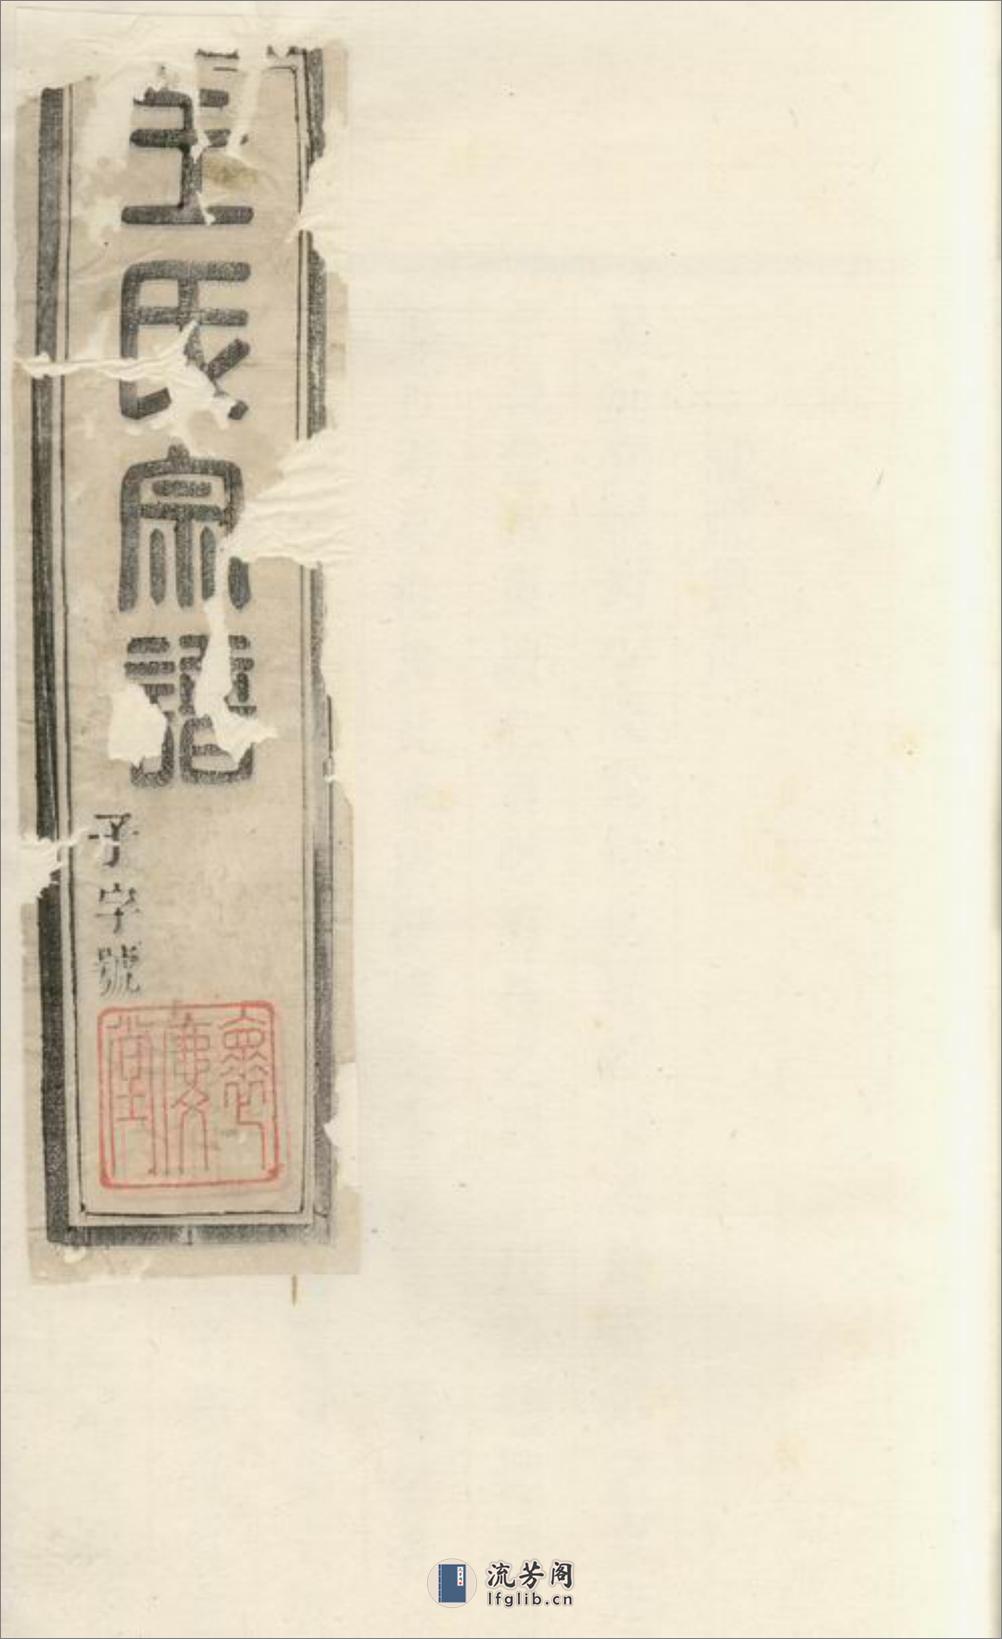 王氏宗譜
子字號
流芳阁
lfglib.cn